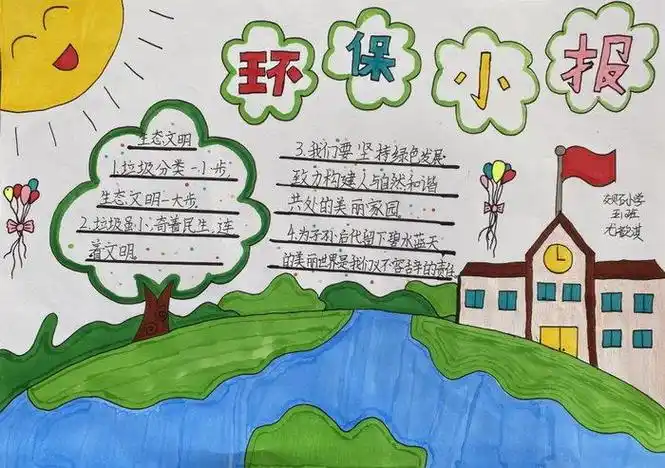 环保小报
生态文明
1.垃圾分类一小步,
生态文明一大步.
2.垃圾虽小,牵着民生,连
着文明.
3.我们要坚持绿色发展
致力构建人与自然和谐
共处的美丽家园.
4.为子孙后代留下碧水蓝天
的美丽世界是我们义不容辞的责任